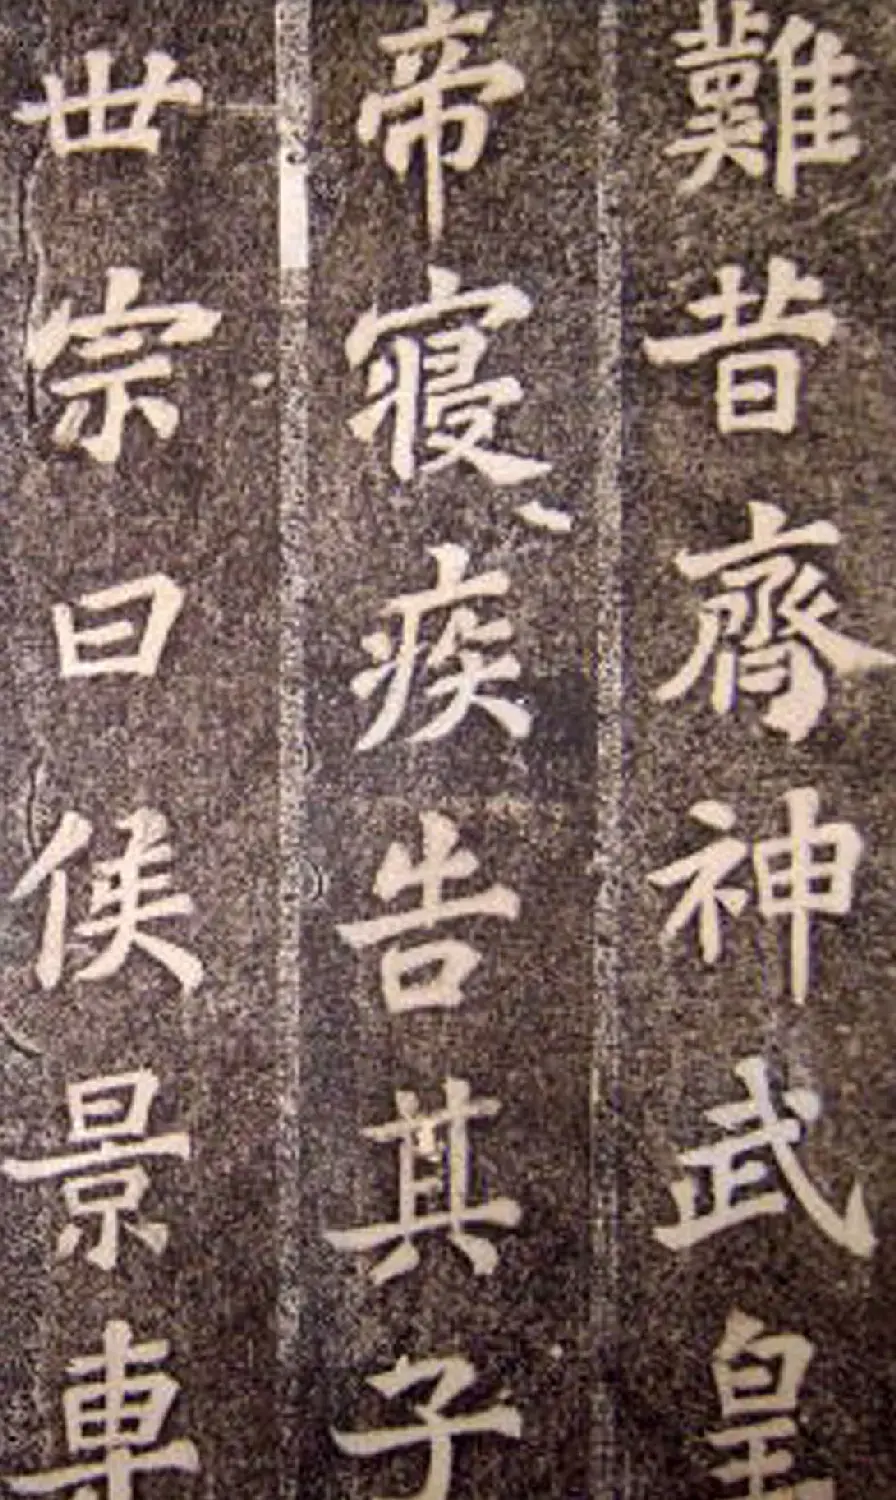 難昔齊神武皇
帝寝疾告其子
丗宗曰侯景專